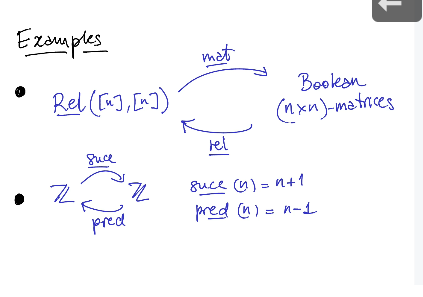 Examples
mat
Rel ([n], [n])
Boolean
(n×n)-matrices
rel
succ
ℤ ℤ
pred
succ (n) = n+1
pred (n) = n-1